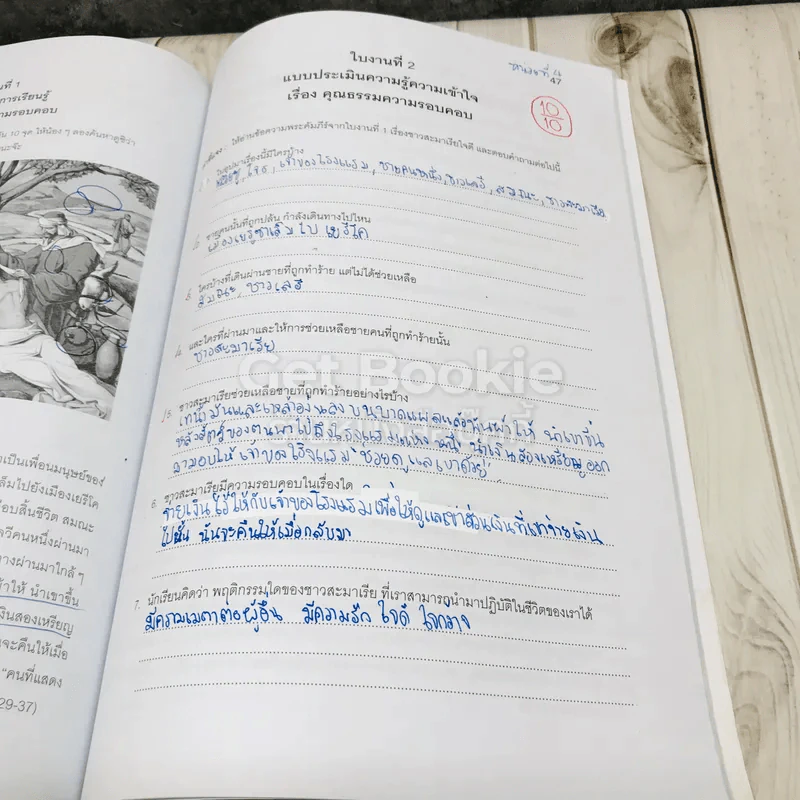 นที่ 1
การเรียนรู้
ามรอบคอบ
ใบงานที่ 2
แบบประเมินความรู้ความเข้าใจ
เรื่อง คุณธรรมความรอบคอบ
47
10
10
ให้อ่านข้อความพระคัมภีร์จากใบงานที่ 1 เรื่องชาวสะมาเรียใจดี และตอบคำถามต่อไปนี้
เรื่องนี้มีใครบ้าง
โจร, เจ้าของโรงแรม, ชายคนหนึ่ง, ชาวเลวี, สมณะ, ชาวสะมาเรีย
2. ชายคนนั้นที่ถูกปล้น กำลังเดินทางไปไหน
เมืองเยรูซาเล็มไป เยรีโค
3. ใครบ้างที่เดินผ่านชายที่ถูกทำร้าย แต่ไม่ได้ช่วยเหลือ
สมณะ, ชาวเลวี
4. และใครที่ผ่านมาและให้การช่วยเหลือชายคนที่ถูกทำร้ายนั้น
ชาวสะมาเรีย
Get Bookie
5. ชาวสะมาเรียช่วยเหลือชายที่ถูกทำร้ายอย่างไรบ้าง
เทน้ำมันและเหล้าองุ่นลงบนบาดแผลแล้วพันผ้าให้ นำเขาขึ้น
หลังสัตว์ของตนพาไปถึงโรงแรมแห่งหนึ่ง นำเงินสองเหรียญออก
มามอบให้เจ้าของโรงแรม ช่วยดูแลเขาด้วย
6. ชาวสะมาเรียมีความรอบคอบในเรื่องใด
จ่ายเงินไว้ให้กับเจ้าของโรงแรมเพื่อให้ดูแลเขาส่วนเงินที่เขาจ่ายเงิน
ไปนั้น ฉันจะคืนให้เมื่อกลับมา
7. นักเรียนคิดว่า พฤติกรรมใดของชาวสะมาเรีย ที่เราสามารถนำมาปฏิบัติในชีวิตของเราได้
มีความเมตตาต่อผู้อื่น มีความรัก ใจดี ใจกว้าง
งเป็นเพื่อนมนุษย์ของ
ล็มไปยังเมืองเยรีโค
ือบสิ้นชีวิต สมณะ
วีคนหนึ่งผ่านมา
างผ่านมาใกล้ ๆ
าให้ นำเขาขึ้น
งินสองเหรียญ
จะคืนให้เมื่อ
"คนที่แสดง
29-37)